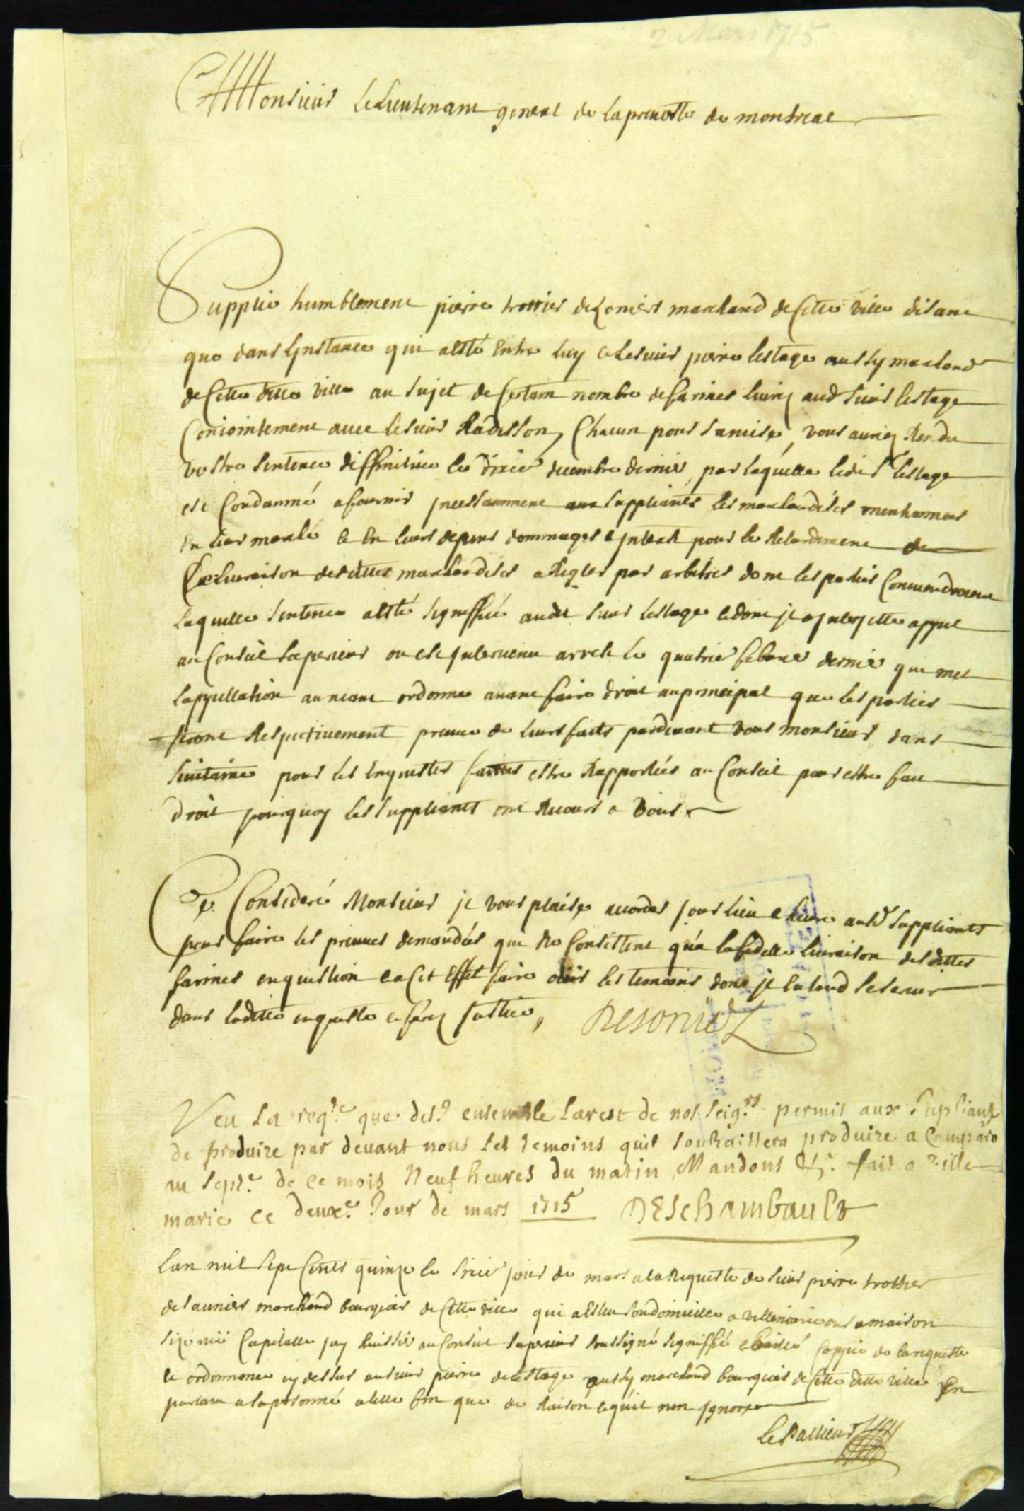 2 Mars 1715
Monsieur Le Lieutenant general de la prevosté de montreal
Supplie humblement pierre trottier dezoniers marchand de Cette ville disant
que dans Linstance qui a esté Entre luy et le sieur pierre lestage aussy marchand
de Cette ditte ville au sujet de Certain nombre de farines livrez aud sieur lestage
Conjointement avec le sieur Radisson, Chacun pour sa mise, vous auriez Rendu
vostre sentence diffinitive le decembre dernier par laquelle ledit Sr lestage
est Condamné a fournir incessamment aux suppliants les marchandises mentionnées
En leur marché et En leurs depens dommages et interets pour le Retardement de
la Livraison desdittes marchandises a Regler par arbitres dont les parties Conviendroient
laquelle sentence a esté signiffié audit sieur lestage et dont il a interjetté appel
au Conseil superieur ou est intervenu arrest le quatrie febvrier dernier qui met
lappellation au neant ordonne avant faire droit au principal que les parties
feront Respectivement preuve de leurs faits pardevant vous monsieur dans
pour les Enquestes faittes estre Rapportées au Conseil pour estre fait
droit pourquoy les suppliants ont Recours a Vous
Ce Consideré Monsieur il vous plaise accorder jour lieu et heure ausd suppliants
pour faire les preuves demandées qui ne Consistent qu'a la ditte livraison desdittes
farines en question et a Cet Effet faire ouir les temoins dont il entend se servir
dans laditte enqueste et ferez Justice, Desoniez
Veu La reqte que dest ensemble Larest de nos seigrs permis aux Supliants
de produire par devant nous Les temoins quil souhaittera produire a Comparo
au sepe de ce mois Neuf heures du matin, Mandons &c. fait a ville
marie ce deuxe Jour de mars 1715 DESChambault
Lan mil sept Cents quinze le jour de mars a la Requeste du sieur pierre trottier
desauniers marchand bourgeois de Cette ville qui a Esleu son domicille a villemarie en sa maison
size rüe Capitalle jay huissier au Conseil superieur soussigné signiffié et baillé Coppie de la requeste
et ordonnance cy dessus au sieur pierre de lestage aussy marchand bourgeois de Cette ditte ville En
parlant a sa personne a Celle fin que de Raison et quil nen ignore
Le Pallieur